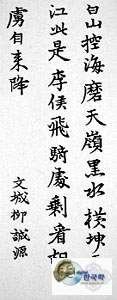 白山控海磨天嶺黑水橫坤
江此是李侯飛騎處剩看胡
虜自來降
文城柳誠源
한국학